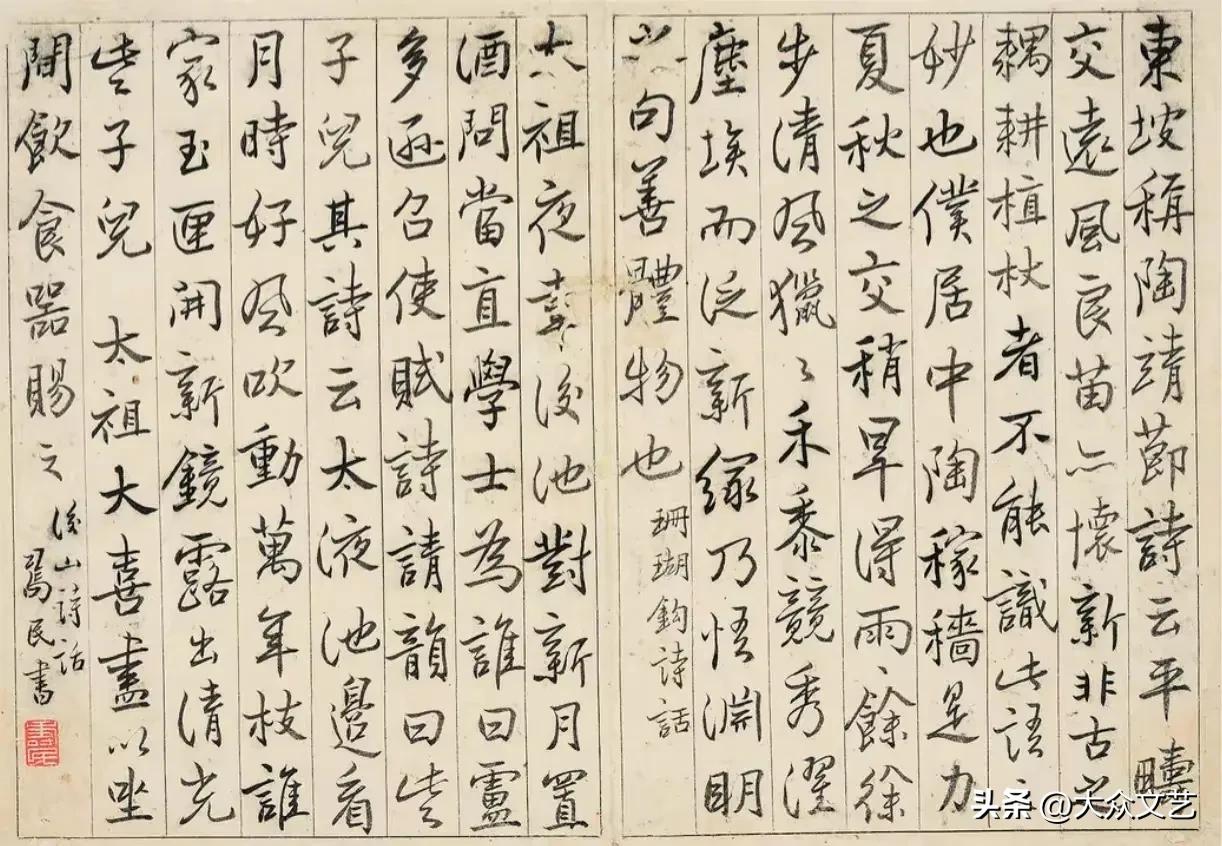 東坡稱陶靖節詩云平疇
交遠風良苗亦懷新非古之
耦耕植杖者不能識此語之
妙也僕居中陶稼穡是力
夏秋之交稍旱得雨〻餘徐
步清風獵〻禾黍競秀濯
塵埃而泛新綠乃悟淵明
之句善體物也
珊瑚鈎詩話
太祖夜幸後池對新月置
酒問當直學士為誰曰盧
多遜召使賦詩請韻曰些
子兒其詩云太液池邊看
月時好風吹動萬年枝誰
家玉匣開新鏡露出清光
些子兒太祖大喜盡以坐
間飲食器賜之
後山詩話
民書
头条 @大众文艺